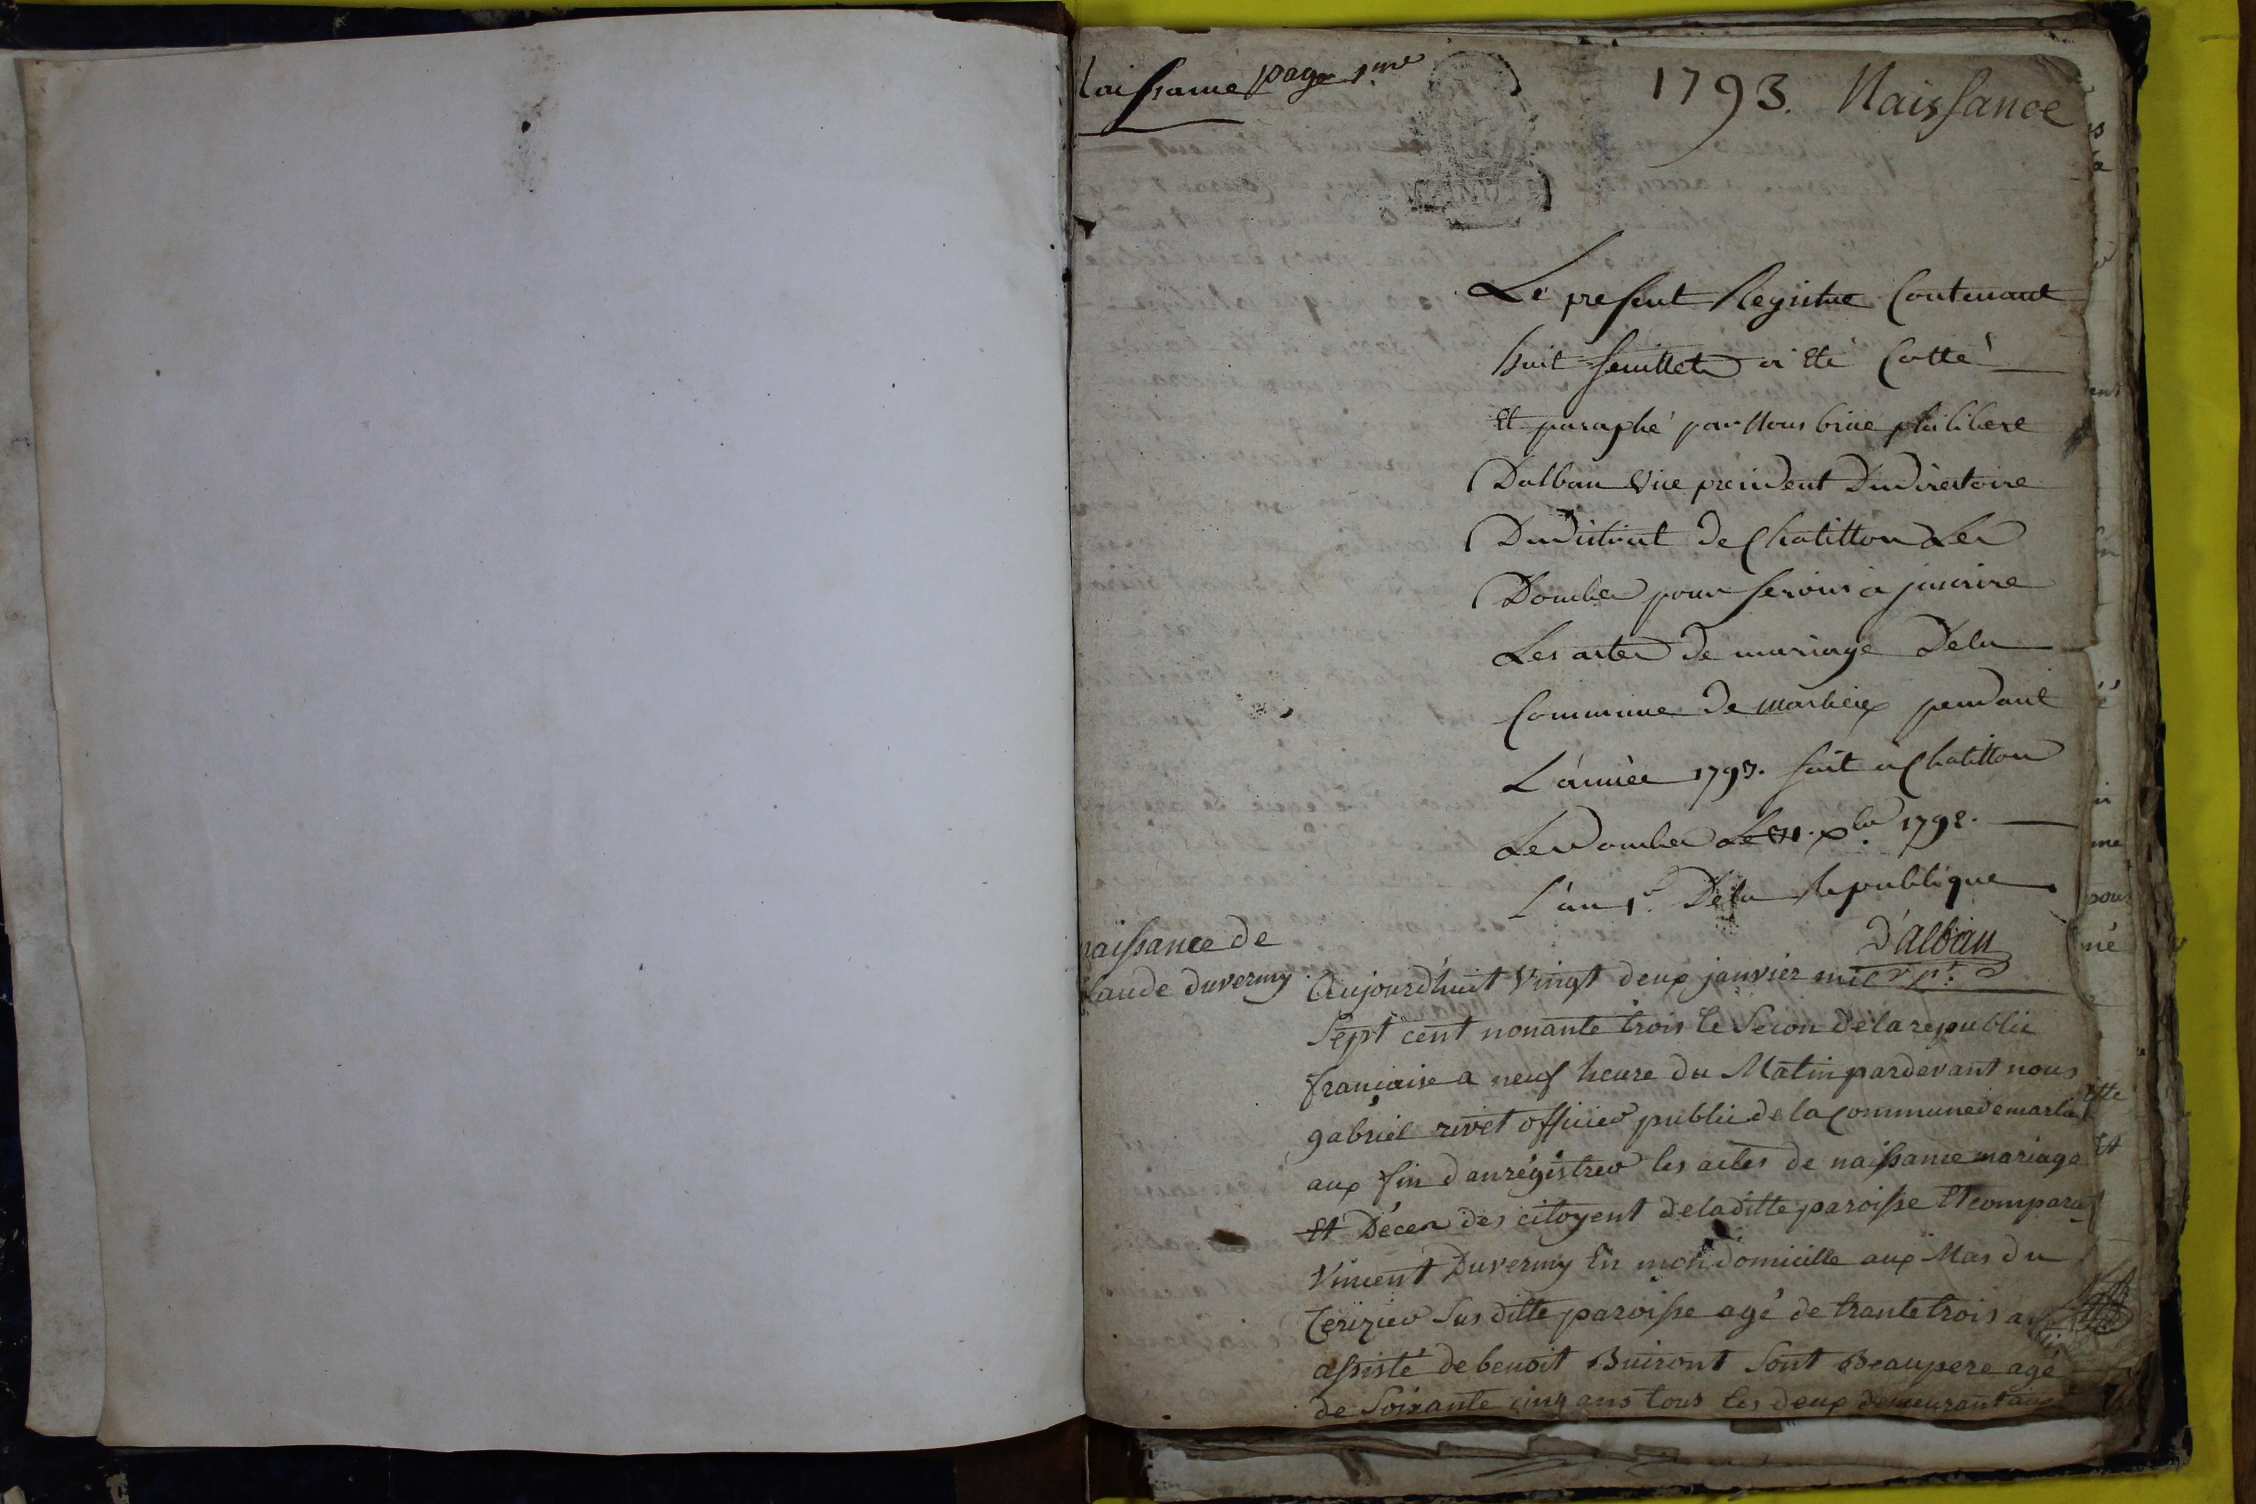 Naissance page 1.me
1793. Naissance
Le present Registre Contenant
huit feuillets a Eté Cotté
Et paraphé par Nous brice philibert
Dalban Vice president Du Directoire
Du district de Chatillon Les
Dombes pour servir a jnscrire
Les actes De mariage Dela
Commune De marlieux pendant
L'année 1793. fait a Chatillon
Les Dombes Le 31. xbre 1792.
L'an 1.r Dela Republique
D'alban
naissance de
Claude duverny
Aujourdhuit vingt deux janvier mil
Sept cent nonante trois le Secon de la republic
francaise a neuf heure du Matin pardevant nous
gabriel rivet officier public de la Commune de marlieu
aux fin d'anrégistrer les actes de naissance mariage
Et Décer des citoyent de laditte paroisse Et comparu
Vincent Duverny En mon domicille aux Mas du
Cerizier Sus ditte paroisse agé de trante trois ans
assisté de benoit Buiront Sont Beaupere agé
de Soixante cinq ans tous les deux demeurant aux